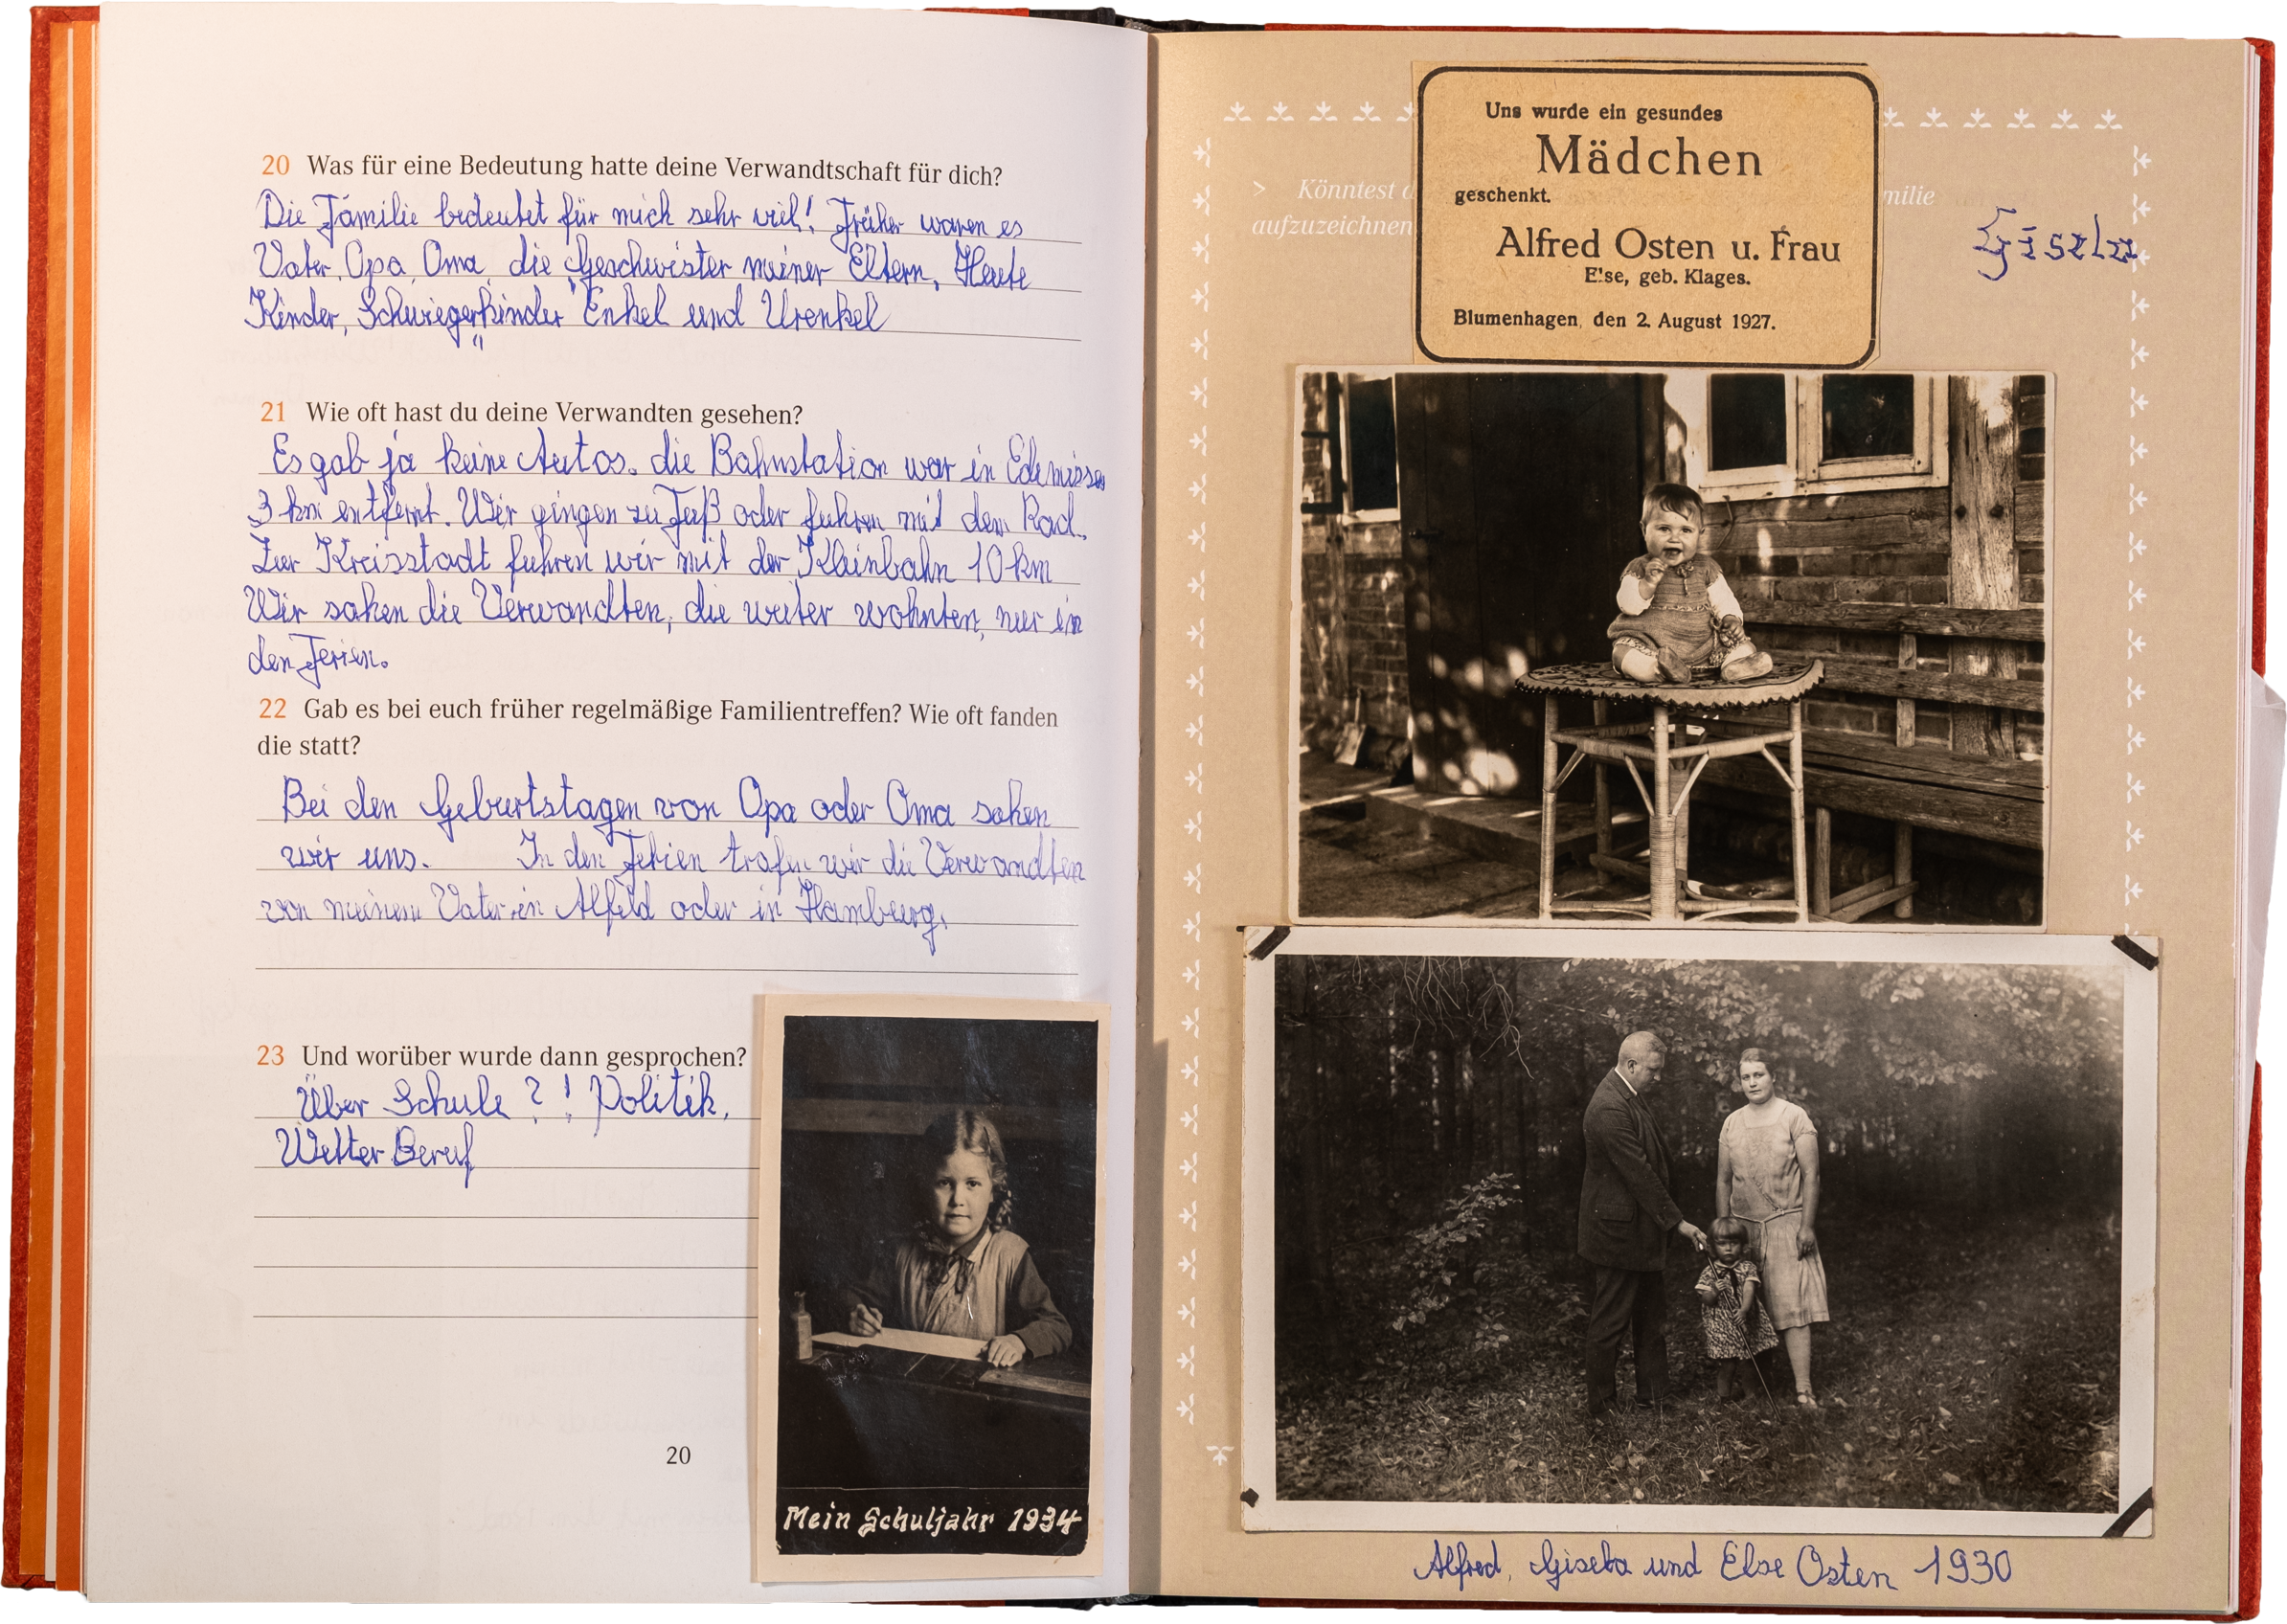 20 Was für eine Bedeutung hatte deine Verwandtschaft für dich?
Die Familie bedeutet für mich sehr viel! Früher waren es
Vater, Opa, Oma, die Geschwister meiner Eltern, Heute
Kinder, Schwiegerkinder Enkel und Urenkel
21 Wie oft hast du deine Verwandten gesehen?
Es gab ja keine Autos. die Bahnstation war in Edemissen
3 km entfernt. Wir gingen zu Fuß oder fuhren mit dem Rad.
Zur Kreisstadt fuhren wir mit der Kleinbahn 10 km
Wir sahen die Verwandten, die weiter wohnten, nur in
den Ferien.
22 Gab es bei euch früher regelmäßige Familientreffen? Wie oft fanden
die statt?
Bei den Geburtstagen von Opa oder Oma sahen
wir uns. In den Ferien trafen wir die Verwandten
von meinem Vater in Alfeld oder in Hamburg.
23 Und worüber wurde dann gesprochen?
Über Schule ?! Politik,
Wetter Beruf
20
Mein Schuljahr 1934
Uns wurde ein gesundes
Mädchen
geschenkt.
Alfred Osten u. Frau
Else, geb. Klages.
Blumenhagen, den 2. August 1927.
> Könntest
milie
aufzuzeichnen
Gisela
Alfred, Gisela und Else Osten 1930